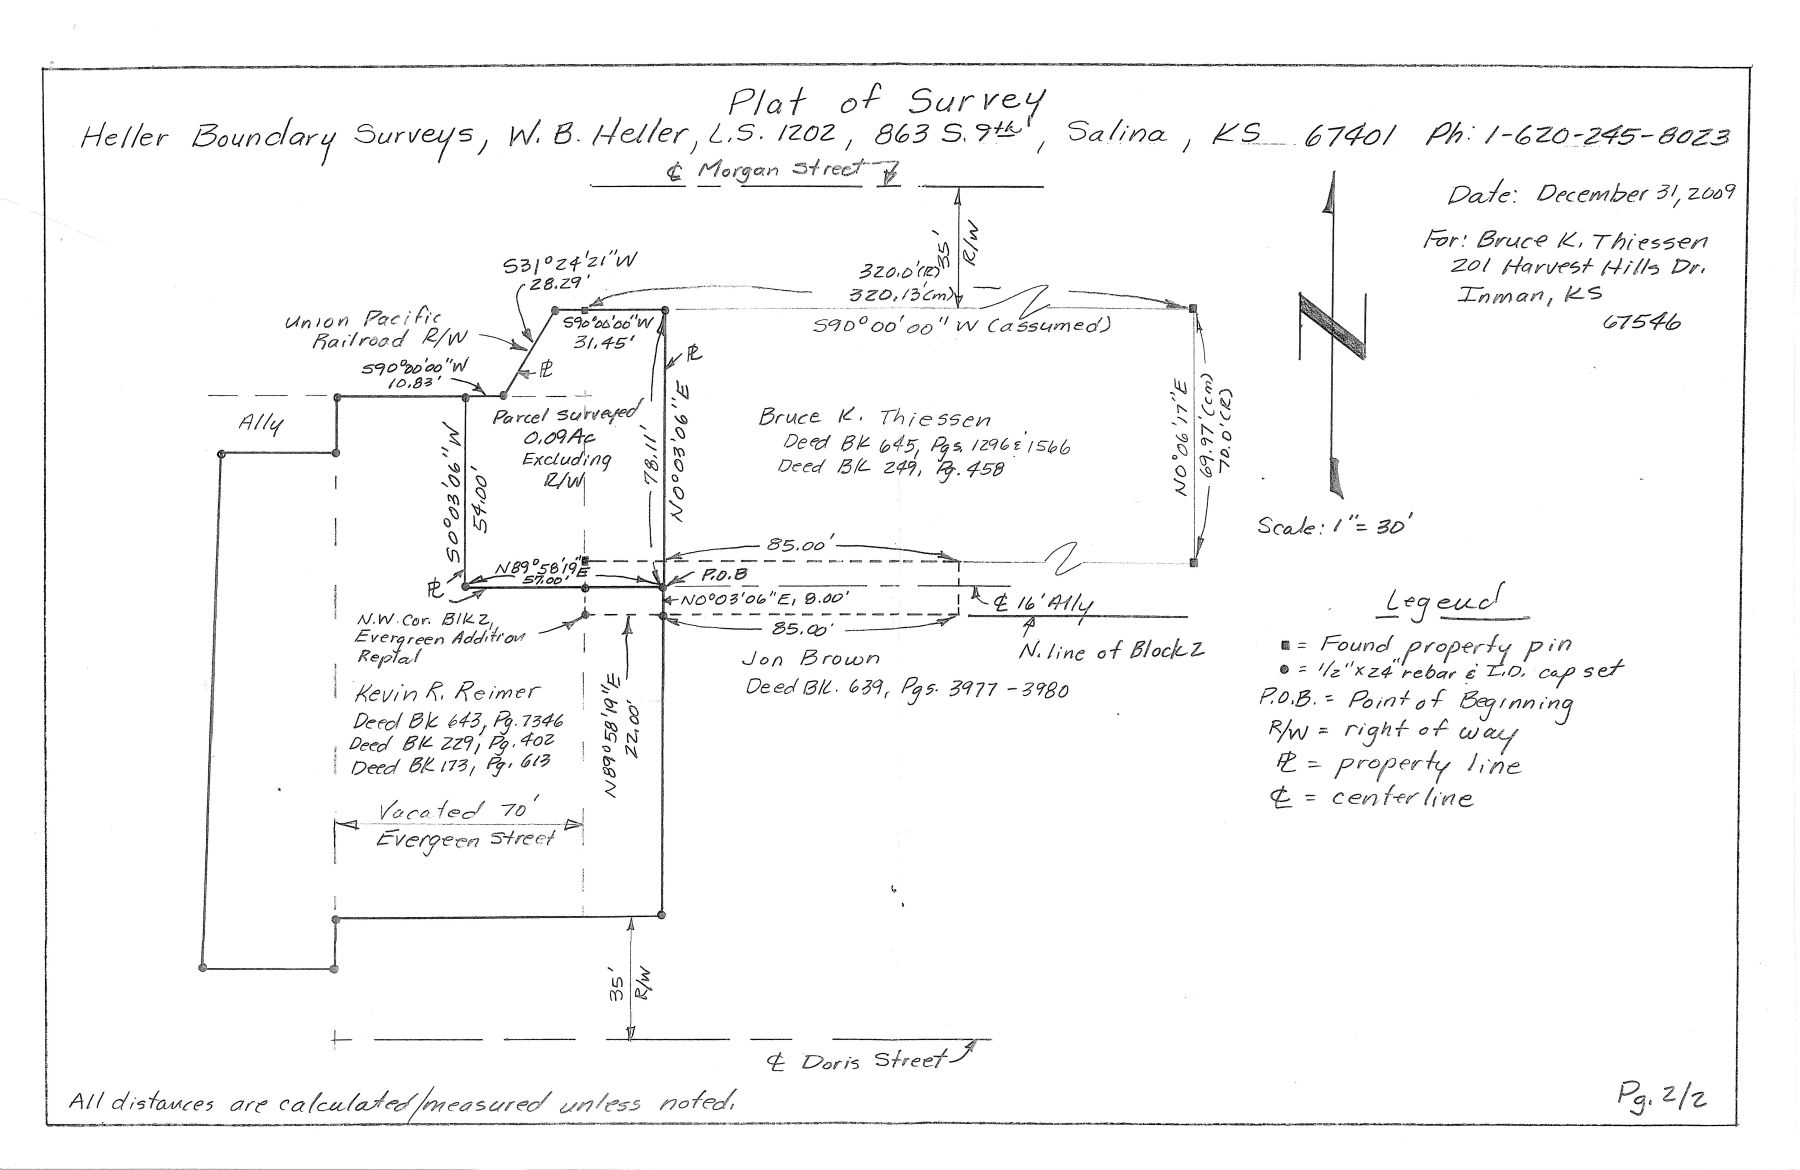 Plat of Survey
Heller Boundary Surveys, W. B. Heller, L.S. 1202, 863 S. 9th, Salina, KS 67401 Ph: 1-620-245-8023
℄ Morgan Street
Date: December 31, 2009
For: Bruce K. Thiessen
201 Harvest Hills Dr.
Inman, KS
67546
35'
R/W
S31°24'21"W
28.29'
320.0'(R)
320.13'(cm)
S90°00'00"W (assumed)
Union Pacific
Railroad R/W
S90°00'00"W
31.45'
S90°00'00"W
10.83'
℄ 
Ally
Parcel Surveyed
0.09 Ac
Excluding
R/W
S0°03'06"W
54.00'
78.11'
N0°03'06"E
Bruce K. Thiessen
Deed BK 645, Pgs. 1296 & 1566
Deed BK 249, Pg. 458
N0°06'17"E
69.97'(cm)
70.0'(R)
Scale: 1"=30'
85.00'
N89°58'19"E
57.00'
P.O.B
N0°03'06"E, 8.00'
℄ 16' Ally
85.00'
N. line of Block 2
N.W. Cor. Blk 2,
Evergreen Addition
Replat
Jon Brown
Deed BK. 639, Pgs. 3977-3980
Kevin R. Reimer
Deed BK 643, Pg. 7346
Deed BK 229, Pg. 402
Deed BK 173, Pg. 613
N89°58'19"E
22.00'
Vacated 70'
Evergeen Street
Legend
= Found property pin
= 1/2"x24" rebar & I.D. cap set
P.O.B. = Point of Beginning
R/W = right of way
PL = property line
℄ = centerline
35'
R/W
℄ Doris Street
All distances are calculated/measured unless noted.
Pg. 2/2